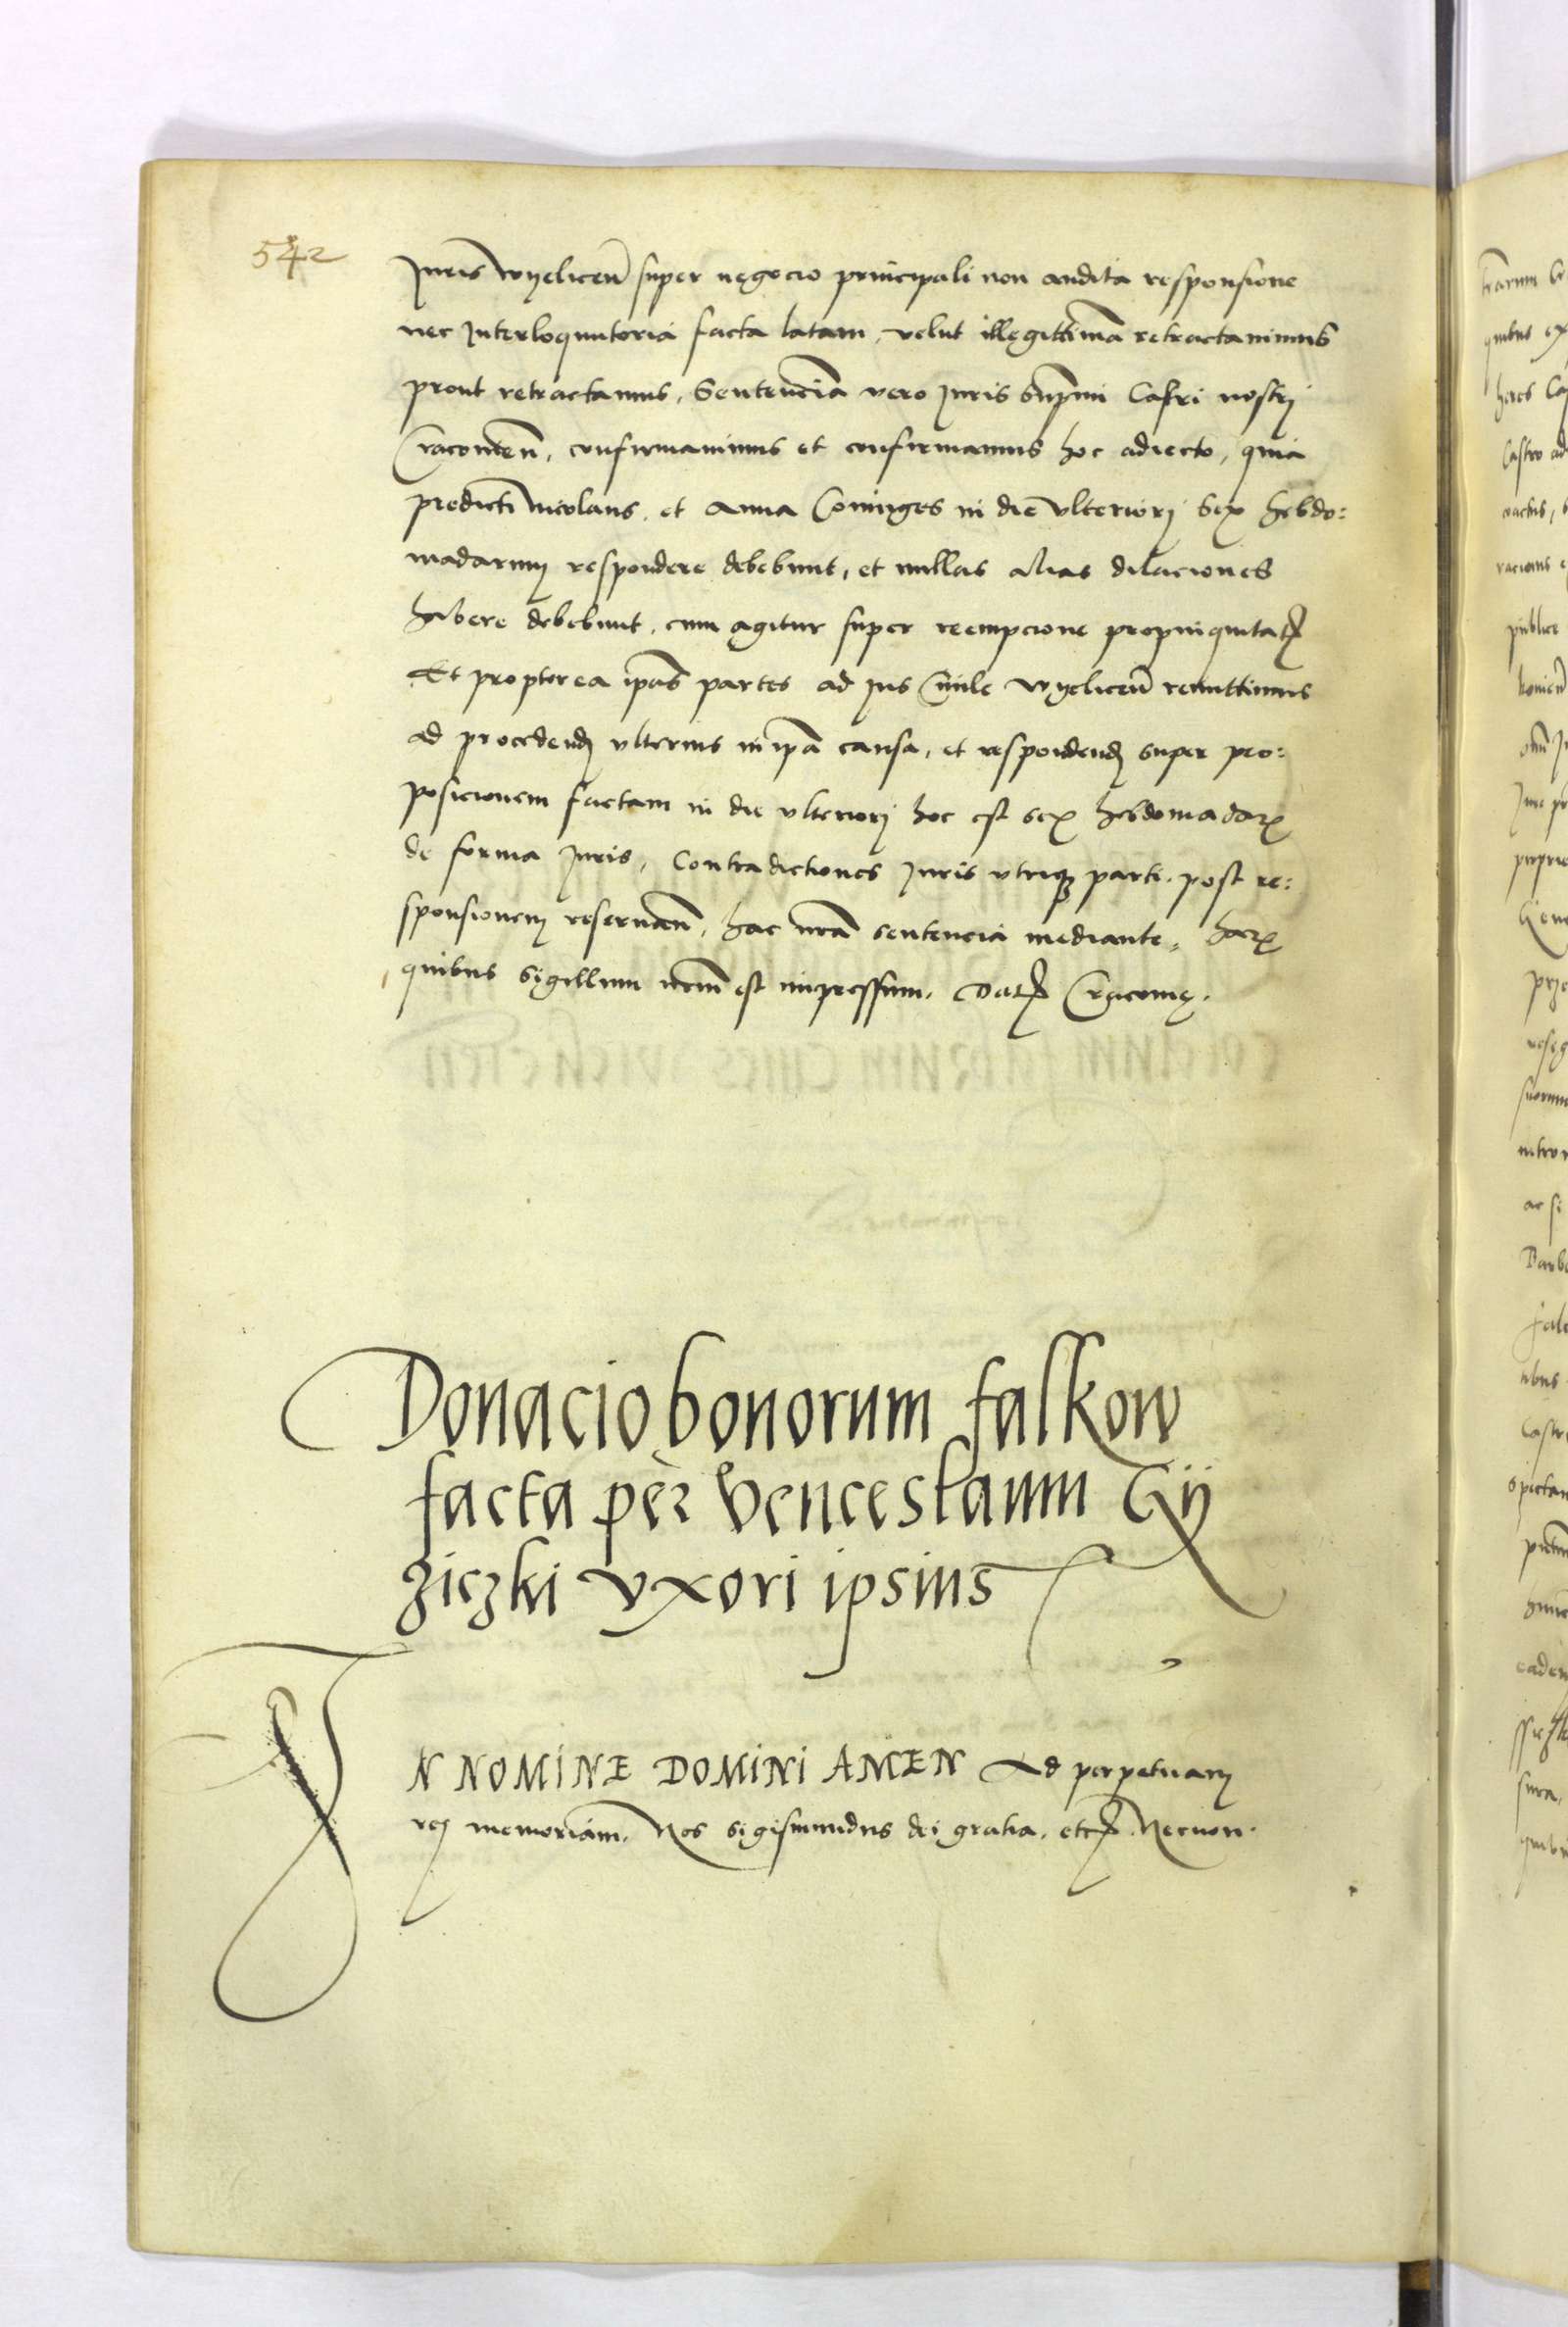 542
Juris wyelicen̄ super negocio principali non audita responsione
nec Interloqutoria facta latam, velut illegittimā retractauimus
prout retractamus, Sentenciā vero Juris sup̄mi Castri nostrj
Cracouien̄, confirmauimus et confirmamus hoc adiecto, quia
predicti Nicolaus, et Anna Coniuges in die vlteriorj sex hebdo:
madarum respondere debebunt, et nullas alias dilaciones
habere debebunt, cum agitur super reempcione propinquitatꝭ
Et propterea ip̄as partes ad Jus Ciuile wyelicen̄ remittimus
ad procedendꝫ vlterius in ip̄a causa, et respondendꝫ super pro:
posicionem factam in die vlteriorj hoc est sex hebdomadarꝝ
de forma Juris, Contradictiones Juris vtriqꝫ parti post re:
sponsionem reseruan̄, hac nr̄a sentencia mediante, harꝝ
quibus sigillum nr̄m est impressum. Datꝭ Cracouię.
Donacio bonorum falkow
facta per Venceslaum Gÿ
ziczki vxori ipsius
IN NOMINE DOMINI AMEN Ad perpetuam
rej memoriam. Nos Sigismundus dei gratia, etcꝭ. Necnon.